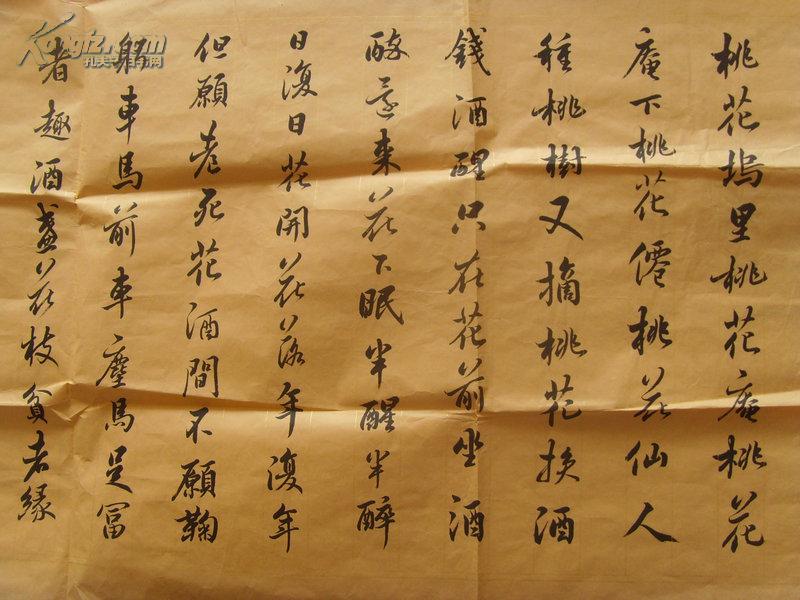 桃花塢里桃花庵桃花
庵下桃花僊桃花仙人
種桃樹又摘桃花换酒
錢酒醒只在花前坐酒
醉還来花下眠半醒半醉
日復日花開花落年復年
但願老死花酒間不願鞠
躬車馬前車塵馬足冨
者趣酒盞花枝貧者緣
Kongfz.com
孔夫子旧书网